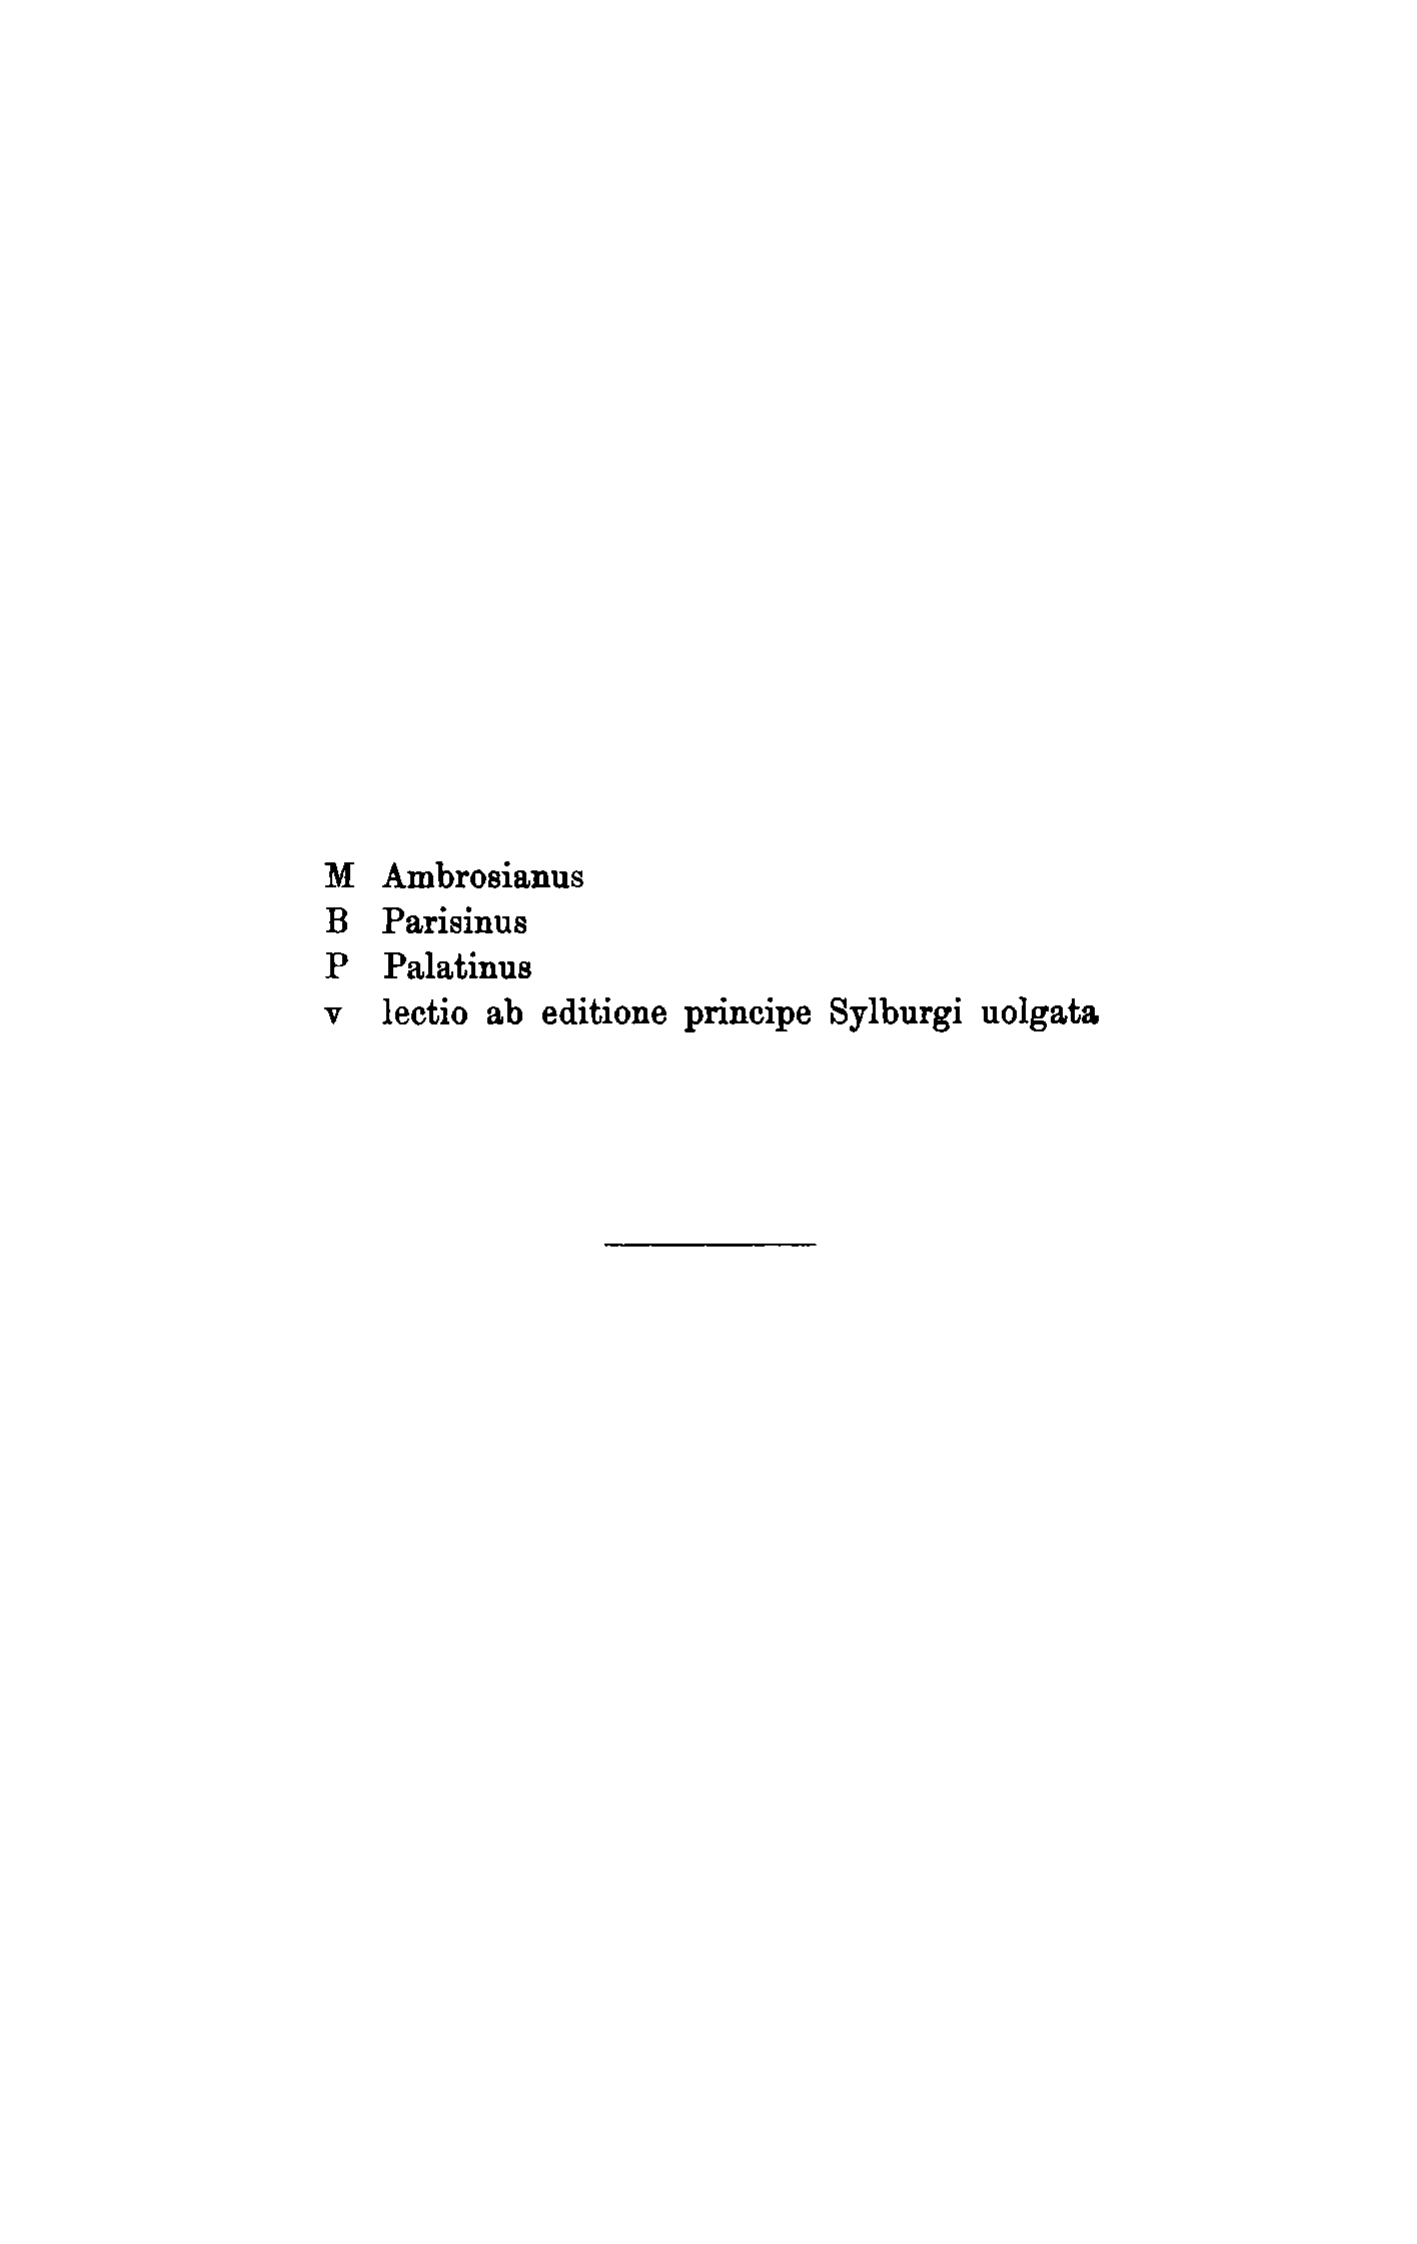 M Ambrosianus
B Parisinus
P Palatinus
v lectio ab editione principe Sylburgi uolgata